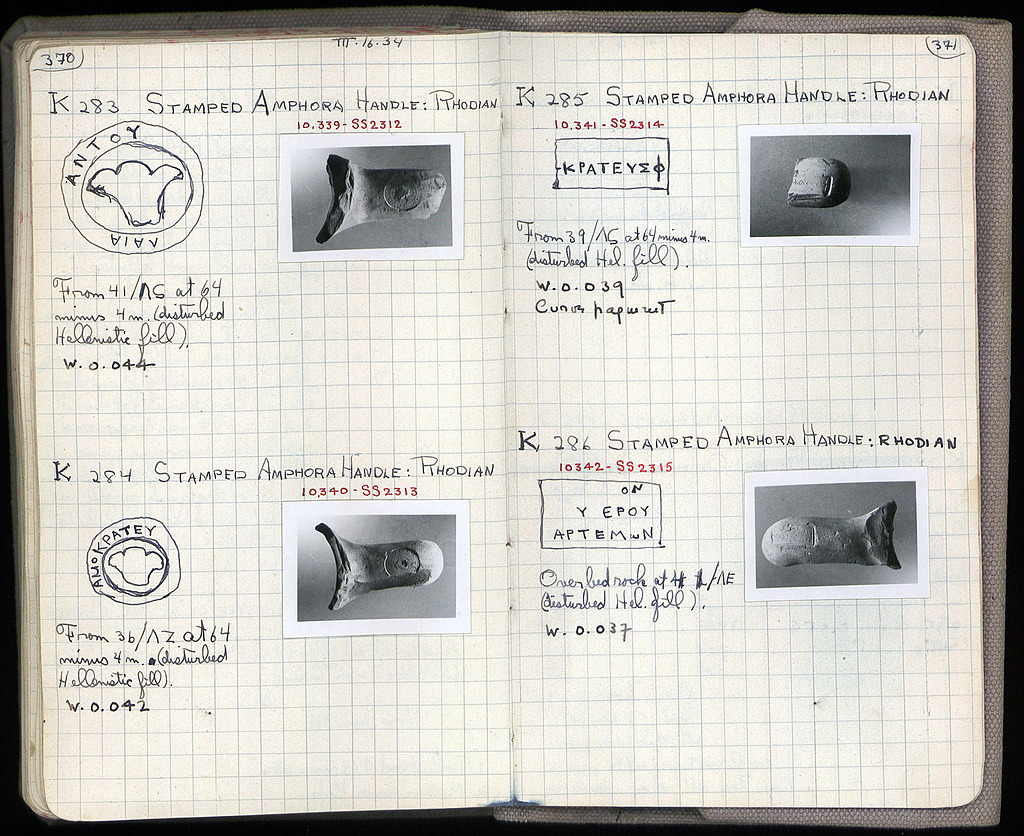 370
III·16·34
K 283 STAMPED AMPHORA HANDLE: RHODIAN
10.339 - SS2312
ΑΝΤΟΥ
ΛΑΙΑ
From 41/ΛS at 64
minus 4 m. (disturbed
Hellenistic fill).
W. 0.044
K 284 STAMPED AMPHORA HANDLE: RHODIAN
10.340 - SS2313
ΑΜΟΚΡΑΤΕΥ
From 36/ΛZ at 64
minus 4 m. (disturbed
Hellenistic fill).
W. 0.042
371
K 285 STAMPED AMPHORA HANDLE: RHODIAN
10.341 - SS2314
ΚΡΑΤΕΥΣΦ
From 39/ΛS at 64 minus 4 m.
(disturbed Hel. fill).
W. 0.039
K 286 STAMPED AMPHORA HANDLE: RHODIAN
10342 - SS2315
ΟΝ
Υ ΕΡΟΥ
ΑΡΤΕΜωΝ
Over bedrock at /ΛΕ
(disturbed Hel. fill).
W. 0.037